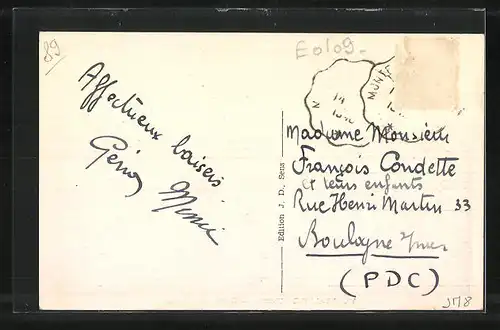 89
E0109-
MONT
Affectueux baisers
Mimi
Edition J. D., Sens
Madame Monsieur
François Condette
et leurs enfants
Rue Henri Martin 33
Boulogne s/mer
(PDC)